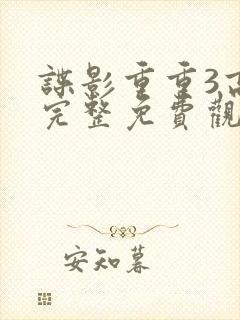 諜影重重3高
完整免費觀
安知暮